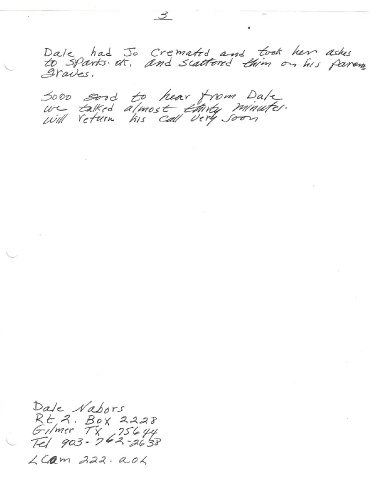 3
Dale had Jo Cremated and took her ashes
to Sparks. ok. and scattered them on his parents
graves.
Sooo good to hear from Dale
we talked almost thirty minutes.
will return his call very soon
Dale Nabors
Rt 2. Box 2228
Gilmer TX 75644
Tel 903-762-2638
LCam 222. aol